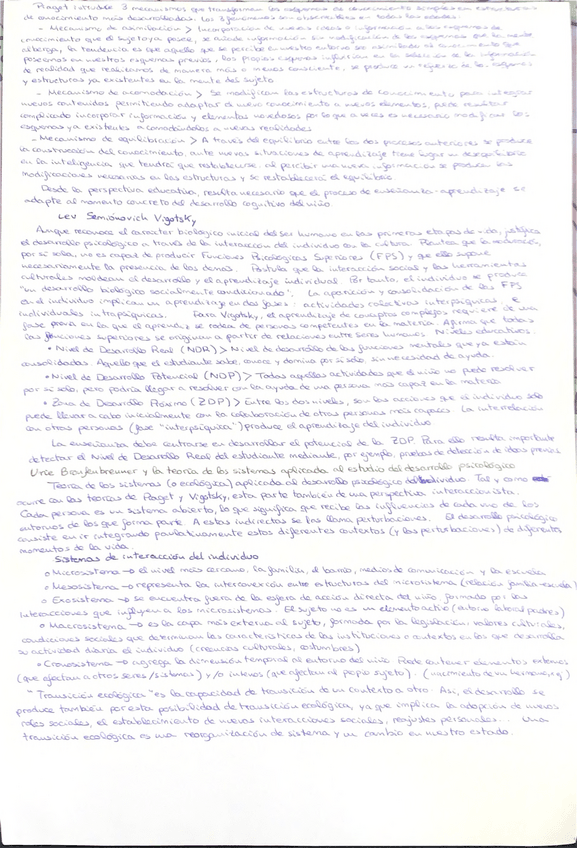 Piaget introduce 3 mecanismos que transforman los esquemas de conocimiento simples en estructuras
de conocimiento más desarrolladas. Los 3 fenómenos son observables en todas las edades:
- Mecanismo de asimilación > Incorporación de nuevas ideas o información a los esquemas de
conocimiento que el sujeto ya posee, se añade información sin modificación de los esquemas que la mente
alberga, la tendencia es que aquello que se percibe en nuestro entorno sea asimilado al conocimiento que
poseamos en nuestros esquemas previos, los propios esquemas influirían en la selección de la información
de realidad que realizamos de manera más o menos consciente, se produce un de los esquemas
y estructuras ya existentes en la mente del sujeto
- Mecanismo de acomodación > Se modifican las estructuras de conocimiento para integrar
nuevos contenidos permitiendo adaptar el nuevo conocimiento a nuevos elementos, puede resultar
complicado incorporar información y elementos novedosos por lo que a veces es necesario modificar los
esquemas ya existentes acomodándolos a nuevas realidades
- Mecanismo de equilibración > A través del equilibrio entre los dos procesos anteriores se produce
la construcción del conocimiento, ante nuevas situaciones de aprendizaje tiene lugar un desequilibrio
en la inteligencia que tendrá que restablecerse, al percibir una nueva información se producen las
modificaciones necesarias en las estructuras y se restablecerá el equilibrio
Desde la perspectiva educativa, resulta necesario que el proceso de enseñanza-aprendizaje se
adapte al momento concreto del desarrollo cognitivo del niño.
Lev Semiónovich Vigotsky
Aunque reconoce el carácter biológico inicial del ser humano en las primeras etapas de vida,
el desarrollo psicológico a través de la interacción del individuo con la cultura. Plantea que la maduración,
por sí sola, no es capaz de producir Funciones Psicológicas Superiores (FPS) y que ello supone
necesariamente la presencia de los demás. Postula que la interacción social y las herramientas
culturales moldean el desarrollo y el aprendizaje individual. Por tanto, el individuo se produce
"un desarrollo biológico socialmente condicionado". La aparición y consolidación de las FPS
en el individuo implican un aprendizaje en dos fases: actividades colectivas interpsíquicas, e
individuales intrapsíquicas. Para Vigotsky, el aprendizaje de conceptos complejos requiere de una
fase previa en la que el aprendiz se rodea de personas competentes en la materia. Afirma que todas
las funciones superiores se originan a partir de relaciones entre seres humanos. Niveles educativos.
• Nivel de Desarrollo Real (NDR) > Nivel de desarrollo de las funciones mentales que ya están
consolidadas. Aquello que el estudiante sabe, conoce y domina por sí solo, sin necesidad de ayuda.
• Nivel de Desarrollo Potencial (NDP) > Todas aquellas actividades que el niño no puede resolver
por sí solo, pero podría llegar a resolver con la ayuda de una persona más capaz en la materia
• Zona de Desarrollo Próximo (ZDP) > Entre los dos niveles, son las acciones que el individuo solo
puede llevar a cabo inicialmente con la colaboración de otras personas más capaces. La interrelación
con otras personas (fase "interpsíquica") produce el aprendizaje del individuo
La enseñanza debe centrarse en desarrollar el potencial de la ZDP. Para ello resulta importante
detectar el Nivel de Desarrollo Real del estudiante mediante, por ejemplo, pruebas de detección de ideas previas
Urie Bronfenbrenner y la teoría de los sistemas aplicada al estudio del desarrollo psicológico
Teoría de los sistemas (o ecológica) aplicada al desarrollo psicológico del individuo. Tal y como
ocurre con las teorías de Piaget y Vigotsky, esta parte también de una perspectiva interaccionista.
Cada persona es un sistema abierto, lo que significa que recibe las influencias de cada uno de los
entornos de los que forma parte. A estas indirectas se las llama perturbaciones. El desarrollo psicológico
consiste en ir integrando paulativamente estos diferentes contextos (y las perturbaciones) de diferentes
momentos de la vida.
Sistemas de interacción del individuo
• Microsistema → el nivel más cercano, la familia, el barrio, medios de comunicación y la escuela
• Mesosistema → representa la interconexión entre estructuras del microsistema (relación familia-escuela)
• Exosistema → se encuentra fuera de la esfera de acción directa del niño, formado por las
interacciones que influyen a los microsistemas. El sujeto no es un elemento activo (entorno laboral padres)
• Macrosistema → es la capa más externa al sujeto, formada por la legislación, valores culturales,
condiciones sociales que determinan las características de las instituciones o contextos en los que desarrolla
su actividad diaria el individuo (creencias culturales, costumbres)
• Cronosistema → agrega la dimensión temporal al entorno del niño. Puede contener elementos externos
(que afectan a otros seres/sistemas) y/o internos (que afectan al propio sujeto). (nacimiento de un hermano,ej)
"Transición ecológica" es la capacidad de transición de un contexto a otro. Así, el desarrollo se
produce también por esta posibilidad de transición ecológica, ya que implica la adopción de nuevos
roles sociales, el establecimiento de nuevas interacciones sociales, reajustes personales... Una
transición ecológica es una reorganización de sistema y un cambio en nuestro estado.